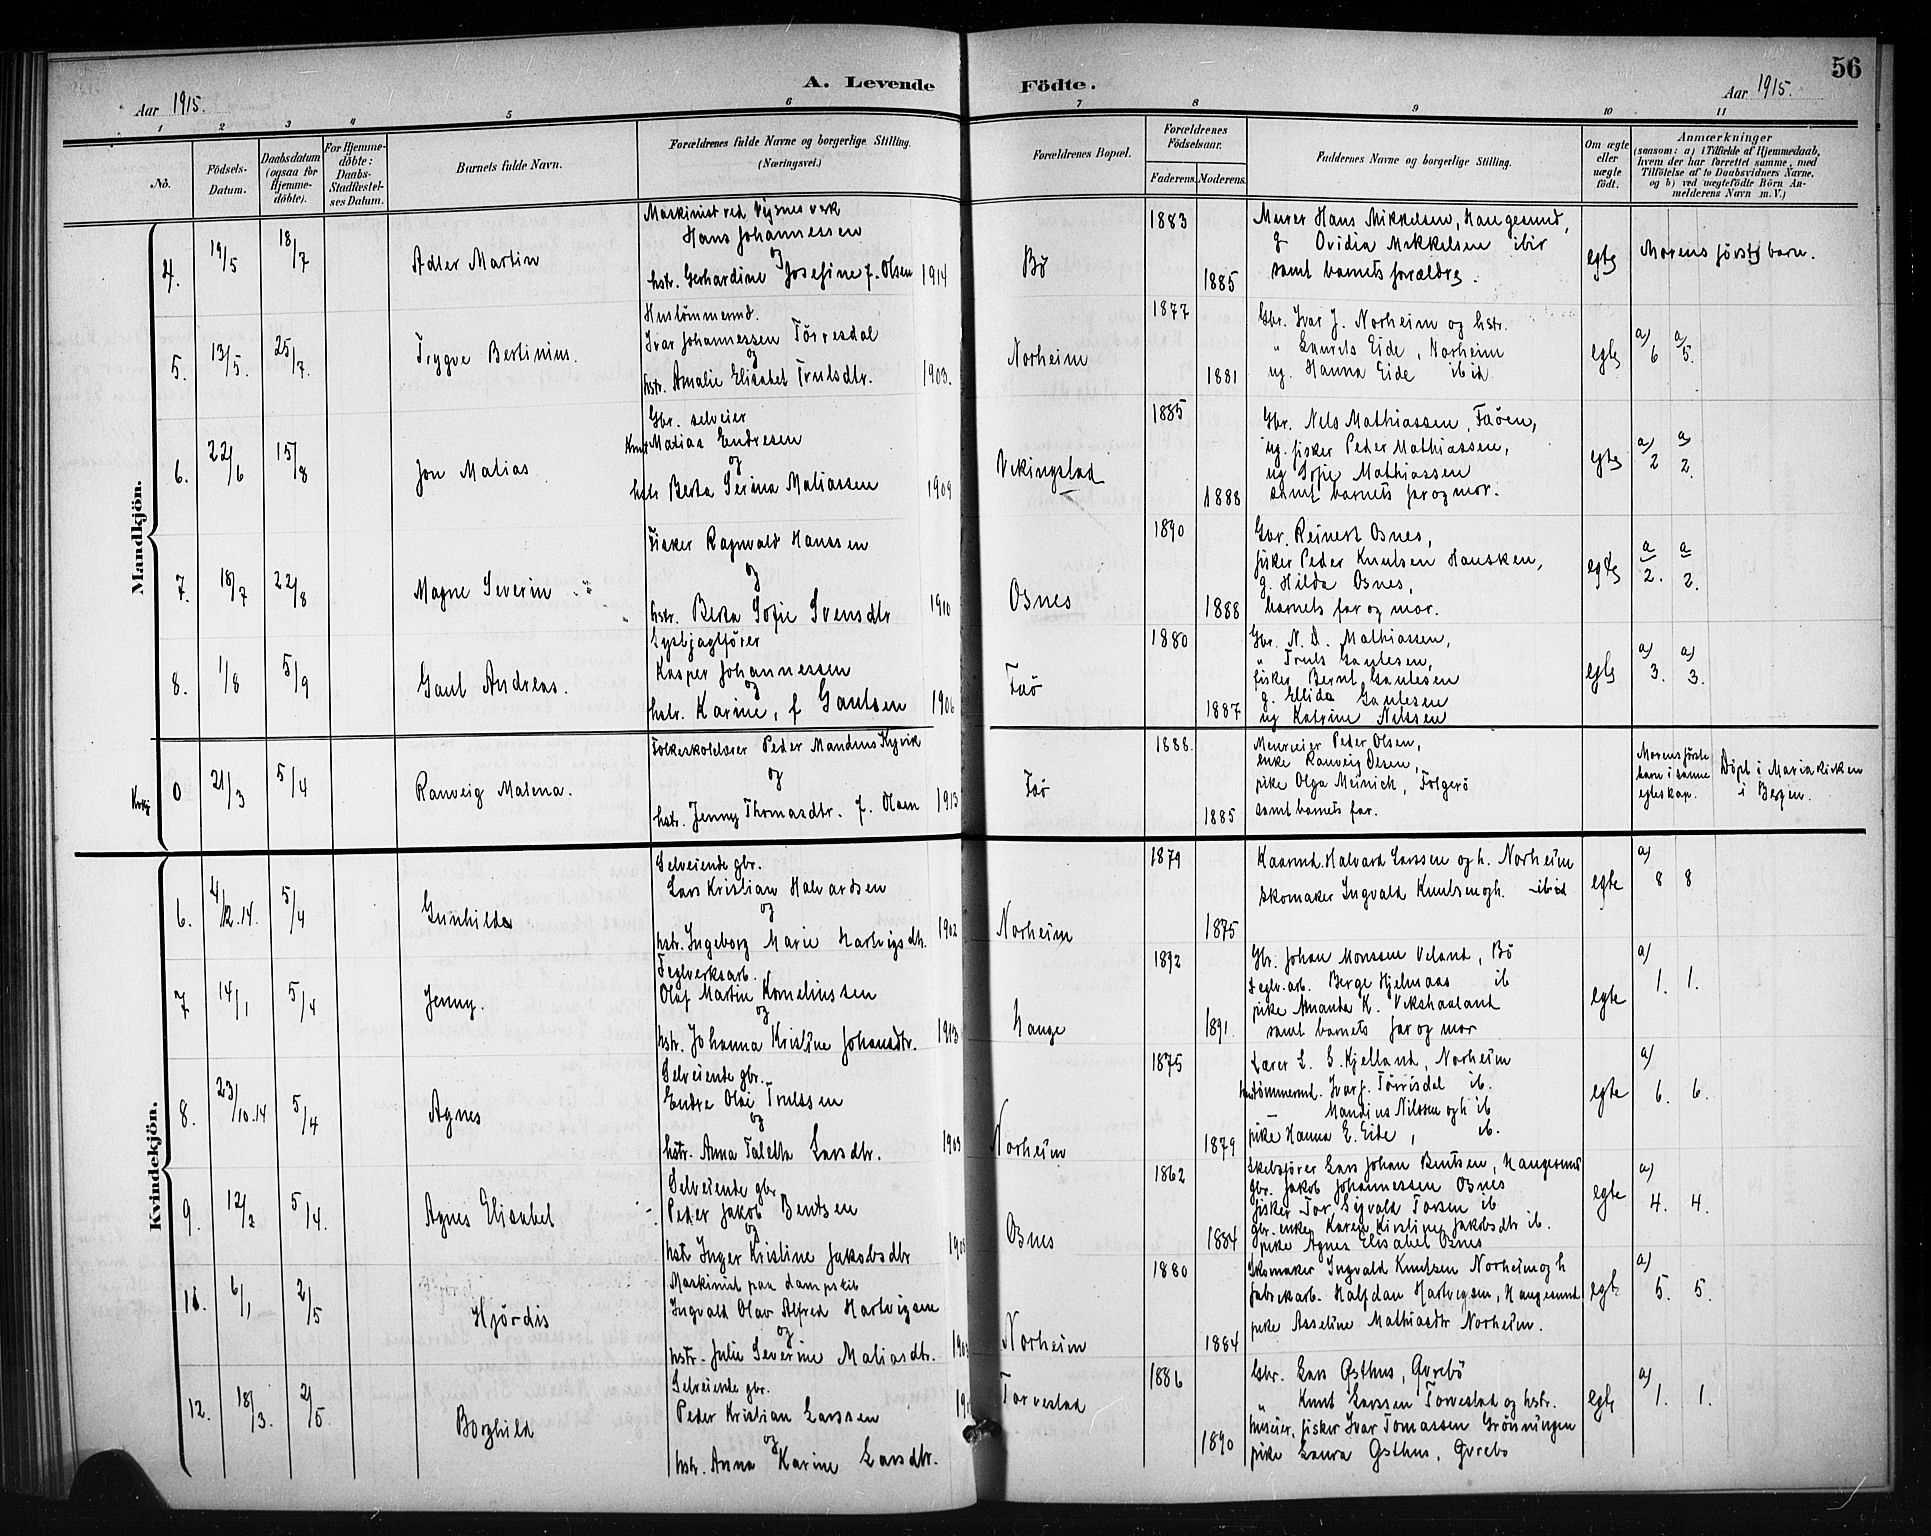 56
A. Levende Födte.
Aar 1915.
Aar 1915.
1 2 3 4 5 6 7 8 9 10 11
No.
Födsels-Datum.
Daabsdatum (ogsaa for Hjemme-döbte).
For Hjemme-döbte: Daabs-Stadfæstel-ses Datum.
Barnets fulde Navn.
Forældrenes fulde Navne og borgerlige Stilling.
(Næringsvei.)
Forældrenes Bopæl.
Forældrenes Födselsaar.
Faderens.
Moderens.
Faddernes Navne og borgerlige Stilling.
Om ægte eller uægte födt.
Anmærkninger
(saasom: a) i Tilfælde af Hjemmedaab, hvem der har forrettet samme, med Tilföielse af to Daabsvidners Navne, og b) ved uægtefödte Börn An-melderens Navn m. V.)
Mandkjön.
4.
19/5
18/7
Adler Martin
Maskinist ved Vigsnes verk
Hans Johannessen
og
hstr. Gerhardine Josefine f. Olsen 1914
Bö
1883
1885
Murer Hans Mikkelsen, Haugesund,
g Ovidia Mikkelsen ibid
samt barnets forældre.
egte
Morens første barn.
5.
13/5.
25/7.
Trygve Bertinius.
Hustömmermd.
Ivar Johannessen Törresdal
og
hstr. Amalie Elisabet Trulsdtr. 1903.
Norheim
1877
1881
Gbr. Ivar J. Norheim og hstr.
" Laurits Eide, Norheim
ug. Hanna Eide ibid.
egte
a) 6 a) 5.
6.
22/6
15/8
Jon Matias
Gbr. selveier
Knut Matias Endresen
og
hstr Berta Serina Matiassen 1909
Vikingstad
1885
1888
Gbr. Nels Mathiassen, Faöen,
ug. fisker Peder Mathiassen,
ug Sofie Mathiassen
samt barnets far og mor.
egte
a) 2 a) 2.
7.
18/7
22/8
Magne Severin
Fisker Ragnvald Hanssen
og
hstr. Berta Sofie Svensdtr 1910
Osnes
1890
1888
Gbr. Reinert Osnes,
fisker Peder Knutsen Hausken,
g. Hilda Osnes,
barnets far og mor.
egte
a 2. a 2.
8.
1/8
5/9
Gaut Andreas.
Lystjagtförer
Kasper Johannessen
og
hstr. Karine, f Gautsen 1906
Faö
1880
1887
Gbr. N. D. Mathiassen,
" Truls Gautesen,
fisker Bernt Gautesen
g. Ellida Gautesen
ug Katrine Nilssen
egte
a) 3. a) 3.
0
21/3
5/4
Ranveig Malena.
Folkeskolelærer Peder Mandius Kyvik
og
hstr. Jenny Thomasdtr. f. Olsen 1913
Faö
1888.
1885
Peder Olsen,
enke Ranveig Olsen,
pike Olga Meinich, Folgerö
samt barnets far.
Morens første barn i denne egteskap.
Döpt i Mariakirken i Bergen.
Kvindekjön.
6.
4/12.14.
5/4
Gunhilda
Selveiende gbr.
Lars Kristian Halvardsen
og
hstr. Ingeborg Marie Hartvigsdtr. 1902
Norheim
1879
1875
Kaarmd. Halvard Larssen og h. Norheim
Skomaker Ingvald Knutsen og h. ibid
egte
a) 8 8
7
14/1
5/4
Jenny.
Teglverksarb.
Olaf Martin Korneliussen
og
hstr. Johanna Kristine Johansdtr. 1913
Hauge
1892
1891.
Gbr. Johan Monssen Veland, Bö
Teglv.arb. Berge Hjelmaas ib
pike Amanda K. Vikshaaland
samt barnets far og mor
egte
a) 1. 1.
8.
23/10.14
5/4
Agnes
Selveiende gbr.
Endre Olai Trulssen
og
hstr. Anna Taletta Larsdtr. 1903
Norheim
1875
1879
Lærer L. S. Kjelland, Norheim
Hustömmermd. Ivar J. Törrisdal ib.
Mandius Nilssen og h ib
pike Hanna E. Eide, ib.
egte
a) 6. 6.
9.
12/2
5/4.
Agnes Elisabet
Selveiende gbr
Peder Jakob Bentsen
og
hstr Inger Kristine Jakobsdtr
Osnes
1862
1884
Skibsförer Lars Johan Bentsen, Haugesund
gbr. Jakob Johannessen Osnes
fisker Tor Sigvald Torsen ib
gbr. enke Karen Kirstine Jakobsdtr ib.
pike Agnes Elisabet Osnes
egte
a) 4. 4.
6/1
2/5
Hjördis
Maskinist paa dampskib
Ingvald Olav Alfred Hartvigsen
og
hstr. Julie Severine Matiasdtr.
Norheim
1880
1884
Skomaker Ingvald Knutsen Norheim og h
fabrikarb. Halfdan Hartvigsen, Haugesund
pike Asseline Mathiasdtr Norheim.
egte
a) 5. 5.
12.
18/3.
2/5.
Borghild
Selveiende gbr.
Peder Kristian Larssen
og
hstr. Anna Karine Larsdtr.
Torvestad
1886
1890
Gbr. Lars Östhus, Gvrebö
" Knut Larssen Torvestad og hstr.
huseier, fisker Ivar Tomassen Grönningen
pike Laura Östhus, Gvrebö
egte
a) 1. 1.